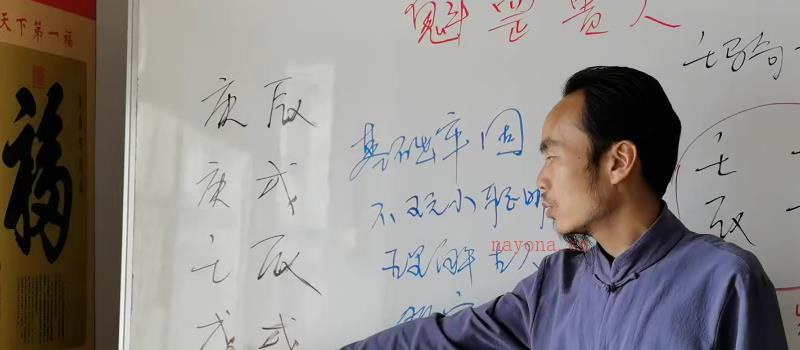 天下第一福
福
魁罡贵人
庚辰
庚戌
壬辰
戊戌
基础牢固
不玩小聪明
理解古人
壬
辰
nayona.cn